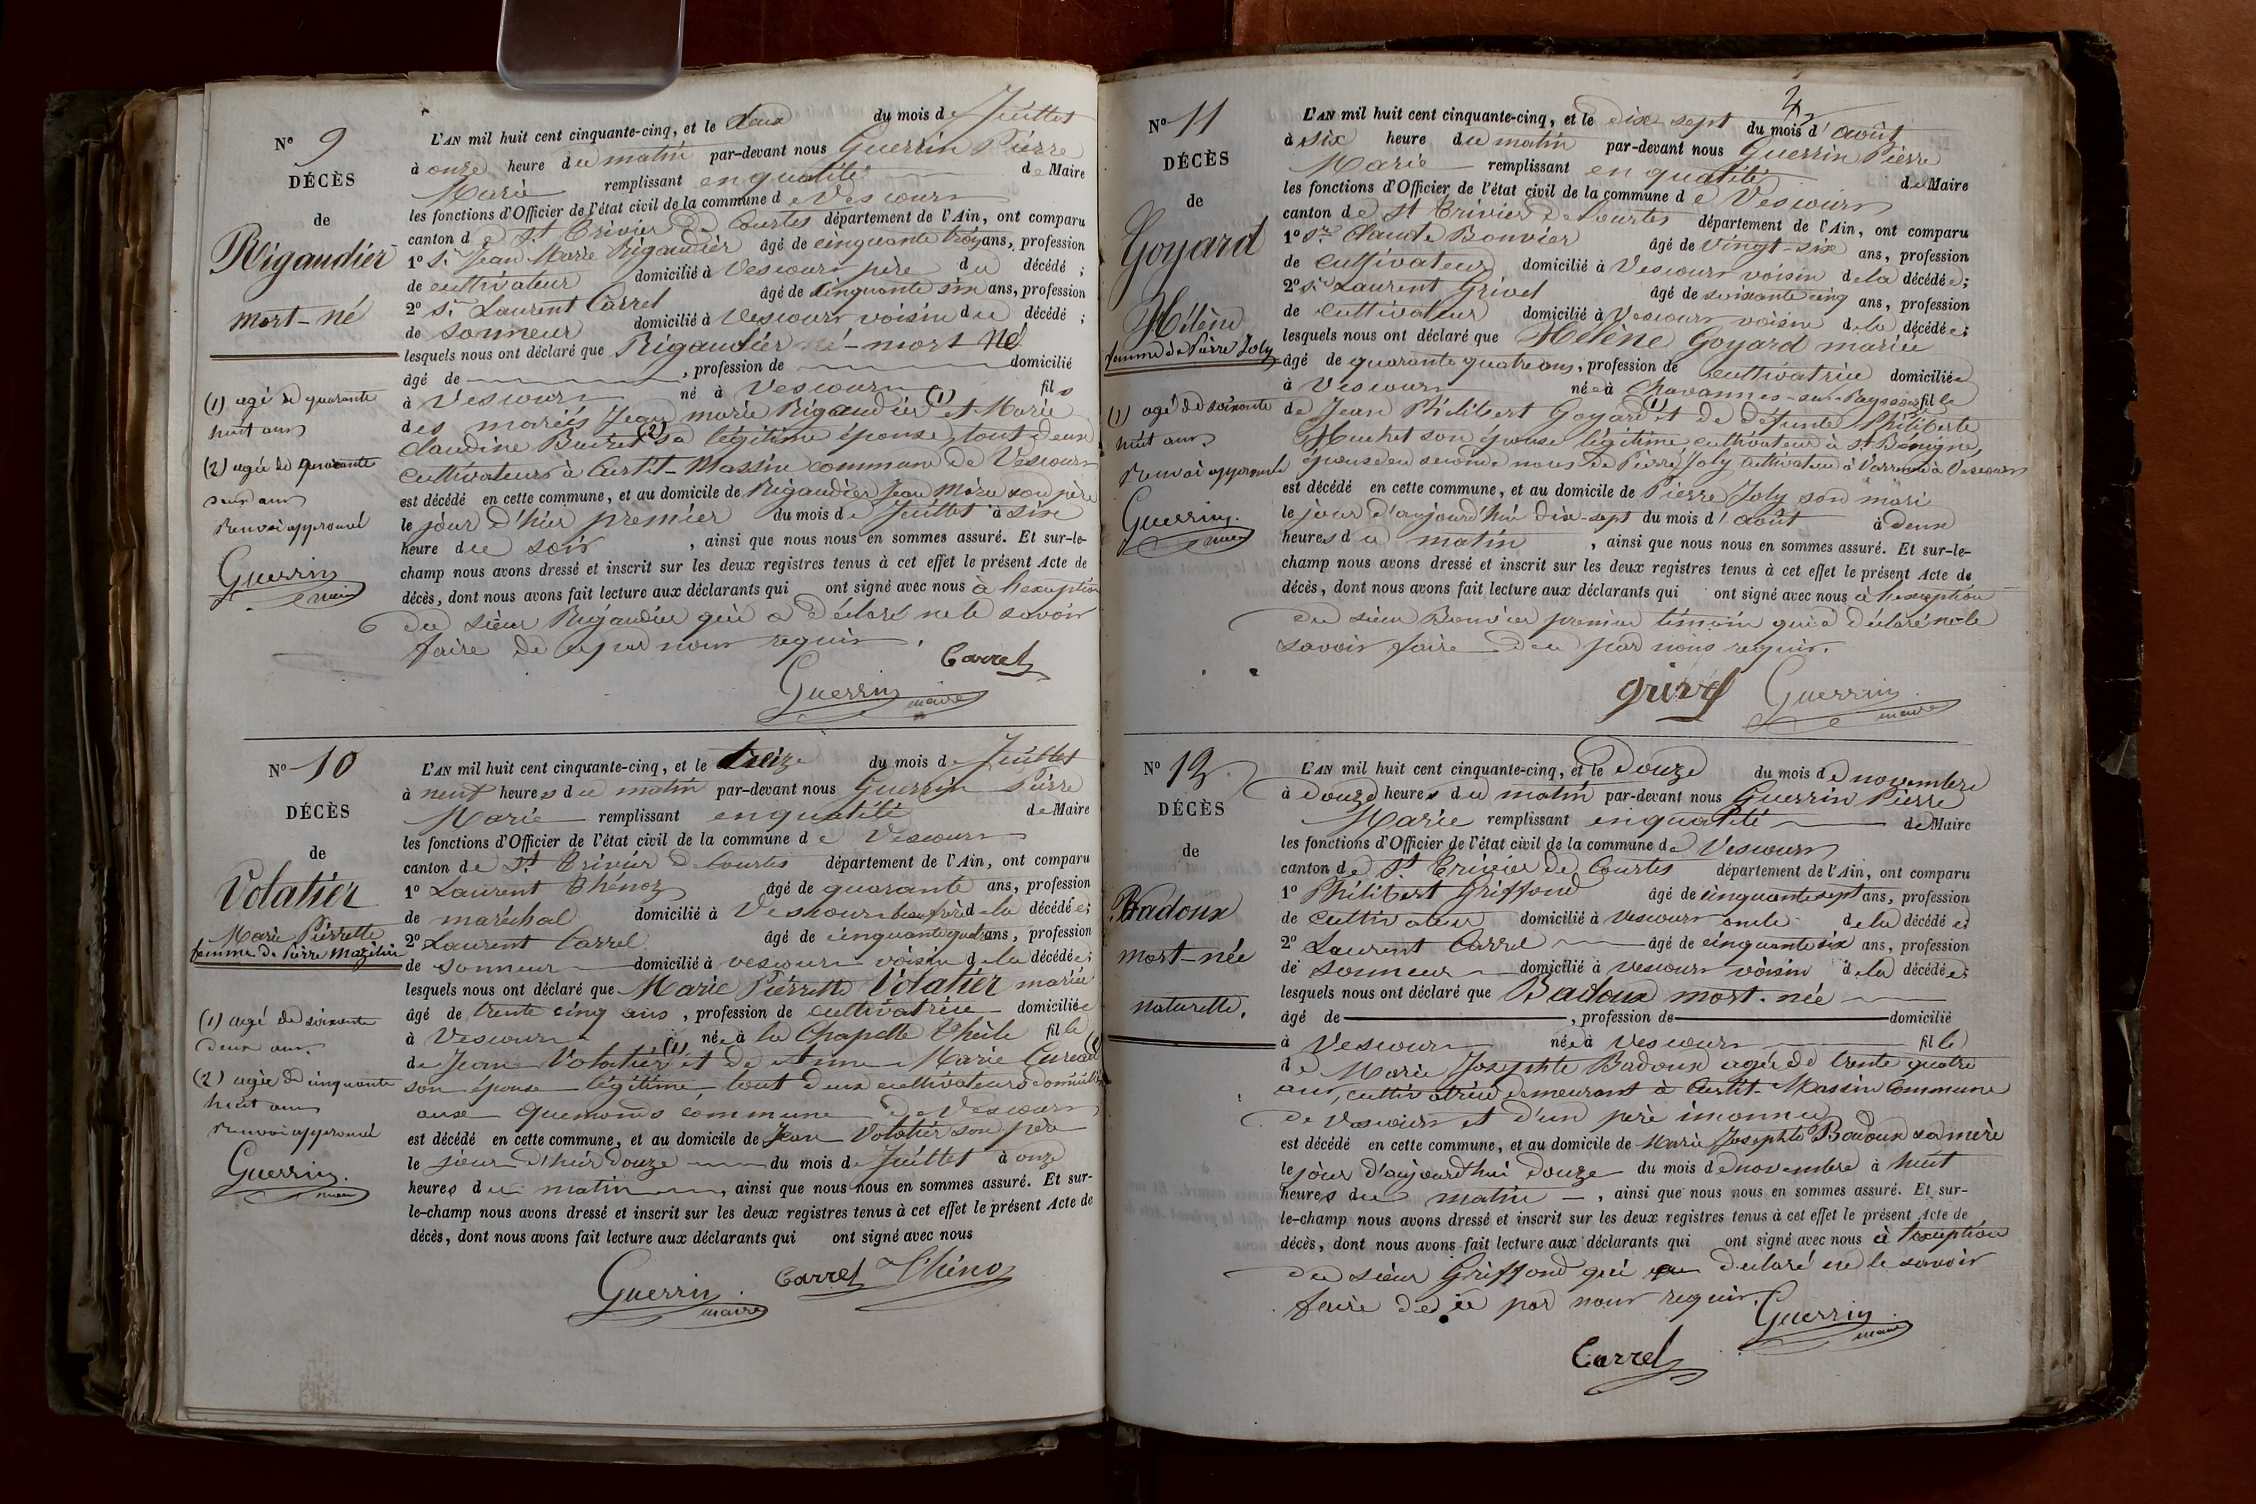 Nº 9
DÉCÈS
de
Rigaudier
mort-né
(1) agé de quarante
huit ans
(2) agée de quarante
deux ans
Renvoi approuvé
Guerrin
maire
L'AN mil huit cent cinquante-cinq, et le deux du mois de Juillet
à onze heure du matin par-devant nous Guerrin Pierre
Marie remplissant en qualité de Maire
les fonctions d'Officier de l'état civil de la commune de Vescours
canton de St Trivier de Courtes département de l'Ain, ont comparu
1º Sr Jean Marie Rigaudier âgé de cinquante trois ans, profession
de cultivateur domicilié à Vescours père du décédé ;
2º Sr Laurent Carrel âgé de cinquante six ans, profession
de sonneur domicilié à Vescours voisin du décédé ;
lesquels nous ont déclaré que Rigaudier né-mort né
âgé de , profession de domicilié
à Vescours né à Vescours fils
des mariés Jean marie Rigaudier (1) et Marie
Claudine (2) sa légitime épouse, tout deux
cultivateurs à Curtit-Massin commune de Vescours
est décédé en cette commune, et au domicile de Rigaudier Jean Marie son père
le jour d'hier premier du mois de Juillet à six
heure du soir , ainsi que nous nous en sommes assuré. Et sur-le-
champ nous avons dressé et inscrit sur les deux registres tenus à cet effet le présent Acte de
décès, dont nous avons fait lecture aux déclarants qui ont signé avec nous à l'exception
du sieur Rigaudier qui a déclaré ne le savoir
faire de ce par nous requis.
Carrel
Guerrin
maire
Nº 10
DÉCÈS
de
Volatier
Marie Pierrette
femme de Pierre Mazilier
(1) agé de soixante
deux ans.
(2) agée de cinquante
huit ans
Renvoi approuvé
Guerrin.
maire
L'AN mil huit cent cinquante-cinq, et le treize du mois de Juillet
à neuf heures du matin par-devant nous Guerrin Pierre
Marie remplissant en qualité de Maire
les fonctions d'Officier de l'état civil de la commune de Vescours
canton de St Trivier de Courtes département de l'Ain, ont comparu
1º Laurent Thénoz âgé de quarante ans, profession
de maréchal domicilié à Vescours beau frère de la décédée;
2º Laurent Carrel âgé de cinquante quatre ans, profession
de sonneur domicilié à vescours voisin de la décédée;
lesquels nous ont déclaré que Marie Pierrette Volatier mariée
âgé de trente cinq ans , profession de cultivatrice domiciliée
à Vescours née à la Chapelle Thècle fille
de Jean Volatier (1) et de Anne Marie (2)
son épouse légitime tout deux cultivateurs domiciliés
aux Quemonds commune de Vescours
est décédé en cette commune, et au domicile de Jean Volatier son père
le jour d'hier douze du mois de Juillet à onze
heures du matin , ainsi que nous nous en sommes assuré. Et sur-
le-champ nous avons dressé et inscrit sur les deux registres tenus à cet effet le présent Acte de
décès, dont nous avons fait lecture aux déclarants qui ont signé avec nous
Guerrin
maire
Carrel Thénoz
Nº 11
DÉCÈS
de
Goyard
Hélène
femme de Pierre Joly
(1) agé de soixante
huit ans
Renvoi approuvé
Guerrin.
maire
L'AN mil huit cent cinquante-cinq, et le dix sept du mois d'août
à six heure du matin par-devant nous Guerrin Pierre
Marie remplissant en qualité de Maire
les fonctions d'Officier de l'état civil de la commune de Vescours
canton de St Trivier de Courtes département de l'Ain, ont comparu
1º Sr Claude Bonvier âgé de vingt-six ans, profession
de cultivateur domicilié à Vescours voisin de la décédée;
2º Sr Laurent Grivel âgé de soixante cinq ans, profession
de cultivateur domicilié à Vescours voisin de la décédée;
lesquels nous ont déclaré que Hélène Goyard mariée
âgé de quarante quatre ans, profession de cultivatrice domiciliée
à Vescours née à Chavannes-sur-Reyssouze fille
de Jean Philibert Goyard (1) et de défunte Philiberte
Muchet son épouse légitime cultivateur à St Bénigne,
épouse en seconde noces de Pierre Joly cultivateur à Varennes à Vescours
est décédé en cette commune, et au domicile de Pierre Joly son mari
le jour d'aujourd'hui dix-sept du mois d'août à deux
heures du matin , ainsi que nous nous en sommes assuré. Et sur-le-
champ nous avons dressé et inscrit sur les deux registres tenus à cet effet le présent Acte de
décès, dont nous avons fait lecture aux déclarants qui ont signé avec nous à l'exception
du sieur Bonvier premier témoin qui a déclaré ne le
savoir faire de ce par nous requis.
grivel
Guerrin.
maire
Nº 12
DÉCÈS
de
Badoux
mort-née
naturelle.
L'AN mil huit cent cinquante-cinq, et le douze du mois de novembre
à douze heures du matin par-devant nous Guerrin Pierre
Marie remplissant en qualité de Maire
les fonctions d'Officier de l'état civil de la commune de Vescours
canton de St Trivier de Courtes département de l'Ain, ont comparu
1º Philibert Griffond âgé de cinquante sept ans, profession
de cultivateur domicilié à vescours oncle de la décédée
2º Laurent Carrel âgé de cinquante six ans, profession
de sonneur domicilié à vescours voisin de la décédée;
lesquels nous ont déclaré que Badoux mort-née
âgé de , profession de domicilié
à Vescours née à Vescours fille
de Marie Josephte Badoux agée de trente quatre
ans, cultivatrice demeurant à Curtit-Massin Commune
de Vescours et d'un père inconnu
est décédé en cette commune, et au domicile de Marie Josephte Badoux sa mère
le jour d'aujourd'hui douze du mois de novembre à huit
heures du matin , ainsi que nous nous en sommes assuré. Et sur-
le-champ nous avons dressé et inscrit sur les deux registres tenus à cet effet le présent Acte de
décès, dont nous avons fait lecture aux déclarants qui ont signé avec nous à l'exception
du sieur Griffond qui a déclaré ne le savoir
faire de ce par nous requis.
Guerrin
maire
Carrel